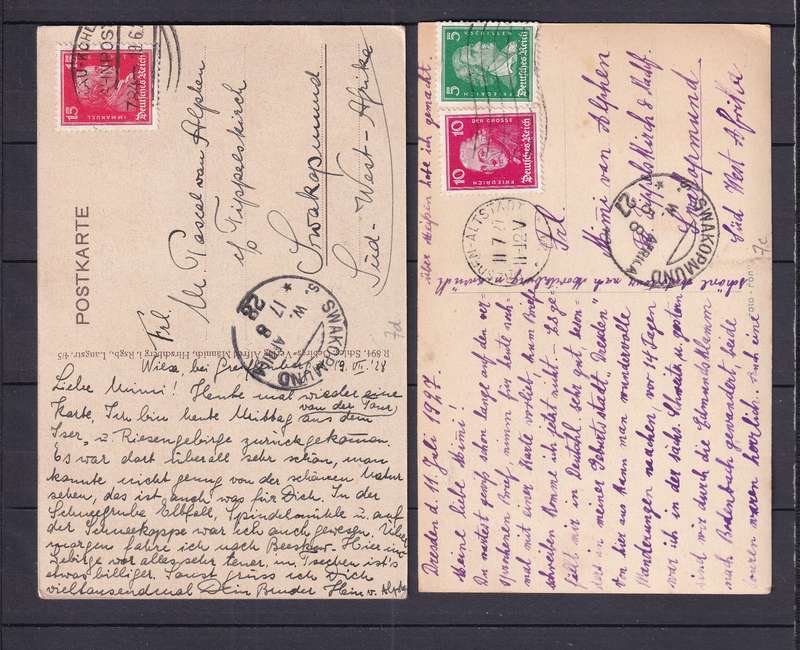 DEUTSCHE
15
15
IMMANUEL
Deutsches Reich
POSTKARTE
Frl. M. Pascal van Alphen
c/o Tippelskirch
Swakopmund
Süd-West-Afrika
SWAKOPMUND
S. W. AFRIKA
17 8
28
7d
Alfred Mannich, Hirschberg i. Rsgb., Langstr.
Liebe Mimi! Heute mal wieder eine
Karte. Ich bin heute Mittag aus dem
von der Tour
Iser- u. Riesengebirge zurückgekommen.
Es war dort überall sehr schön, man
konnte nicht genug von der schönen Natur
sehen, das ist auch was für Dich. In der
Schneegrube Elbfall, Spindelmühle u. auf
der Schneekoppe war ich auch gewesen. Über
morgen fahre ich nach Beeskow. Hier im
Gebirge war alles sehr teuer, im Tschechen ist's
etwas billiger. Sonst grüss ich Dich
vieltausendmal Dein Bruder Hein v. Alphen
5
5
FRIEDRICH
Deutsches Reich
10
10
FRIEDRICH
Deutsches Reich
DRESDEN-ALTSTADT
11 7 27
Frl.
Mimi van Alphen
Swakopmund
Süd West Afrika
SWAKOPMUND
S. W. AFRIKA
8
27
7c
über Meißen habe ich gemacht.
Dresden d. 11. Juli 1927
Meine liebe Mimi!
Du wartest gewiß schon lange auf den ver-
sprochenen Brief, nimm für heute noch-
mal mit einer Karte vorlieb zum Brief
schreiben komme ich jetzt nicht. - Es ge-
fällt mir in Deutschl. sehr gut beson-
ders in meiner Geburtsstadt "Dresden"
Von hier aus kann man wundervolle
Wanderungen machen, vor 14 Tagen
war ich in der sächs. Schweiz u. gestern
sind wir durch die Edmundsklamm
nach Bodenbach gewandert, beide
Touren waren herrlich. Auch eine